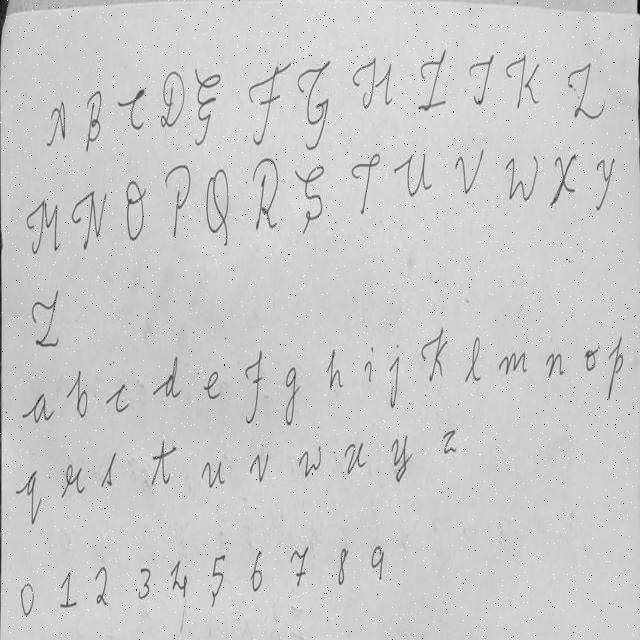 A B C D E F G H I J K L
M N O P Q R S T U V W X Y
Z
a b c d e f g h i j k l m n o p
q r s t u v w x y z
0 1 2 3 4 5 6 7 8 9